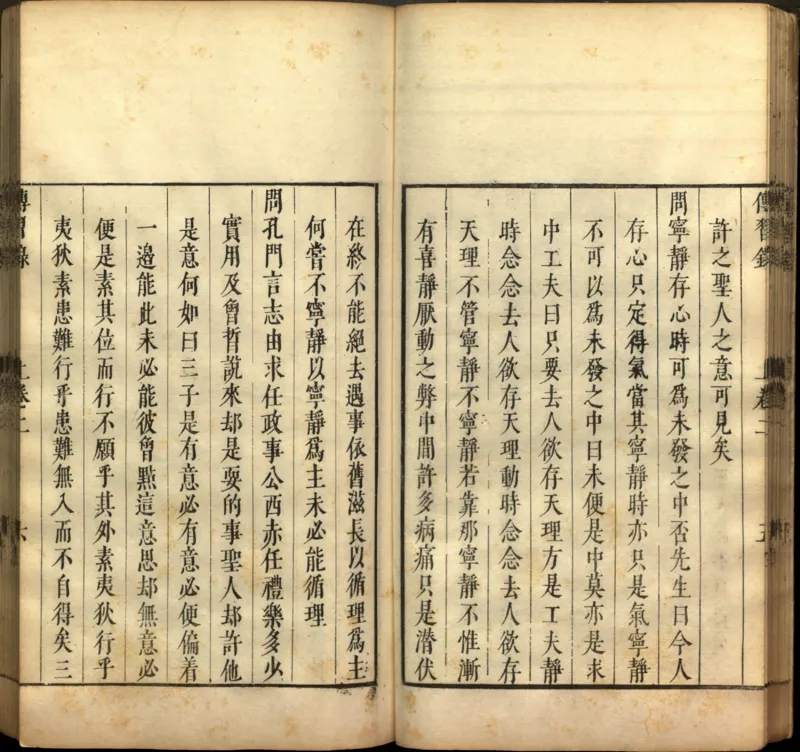 傳習錄 上卷二 五
許之聖人之意可見矣
問寧靜存心時可為未發之中否先生曰今人
存心只定得氣當其寧靜時亦只是氣寧靜
不可以為未發之中曰未便是中莫亦是求
中工夫曰只要去人欲存天理方是工夫靜
時念念去人欲存天理動時念念去人欲存
天理不管寧靜不寧靜若靠那寧靜不惟漸
有喜靜厭動之弊中間許多病痛只是潛伏
在終不能絕去遇事依舊滋長以循理為主
何嘗不寧靜以寧靜為主未必能循理
問孔門言志由求任政事公西赤任禮樂多少
實用及曾晳說來却是耍的事聖人却許他
是意何如曰三子是有意必有意必便偏着
一邊能此未必能彼曾點這意思却無意必
便是素其位而行不願乎其外素夷狄行乎
夷狄素患難行乎患難無入而不自得矣三
傳習錄 上卷二 六